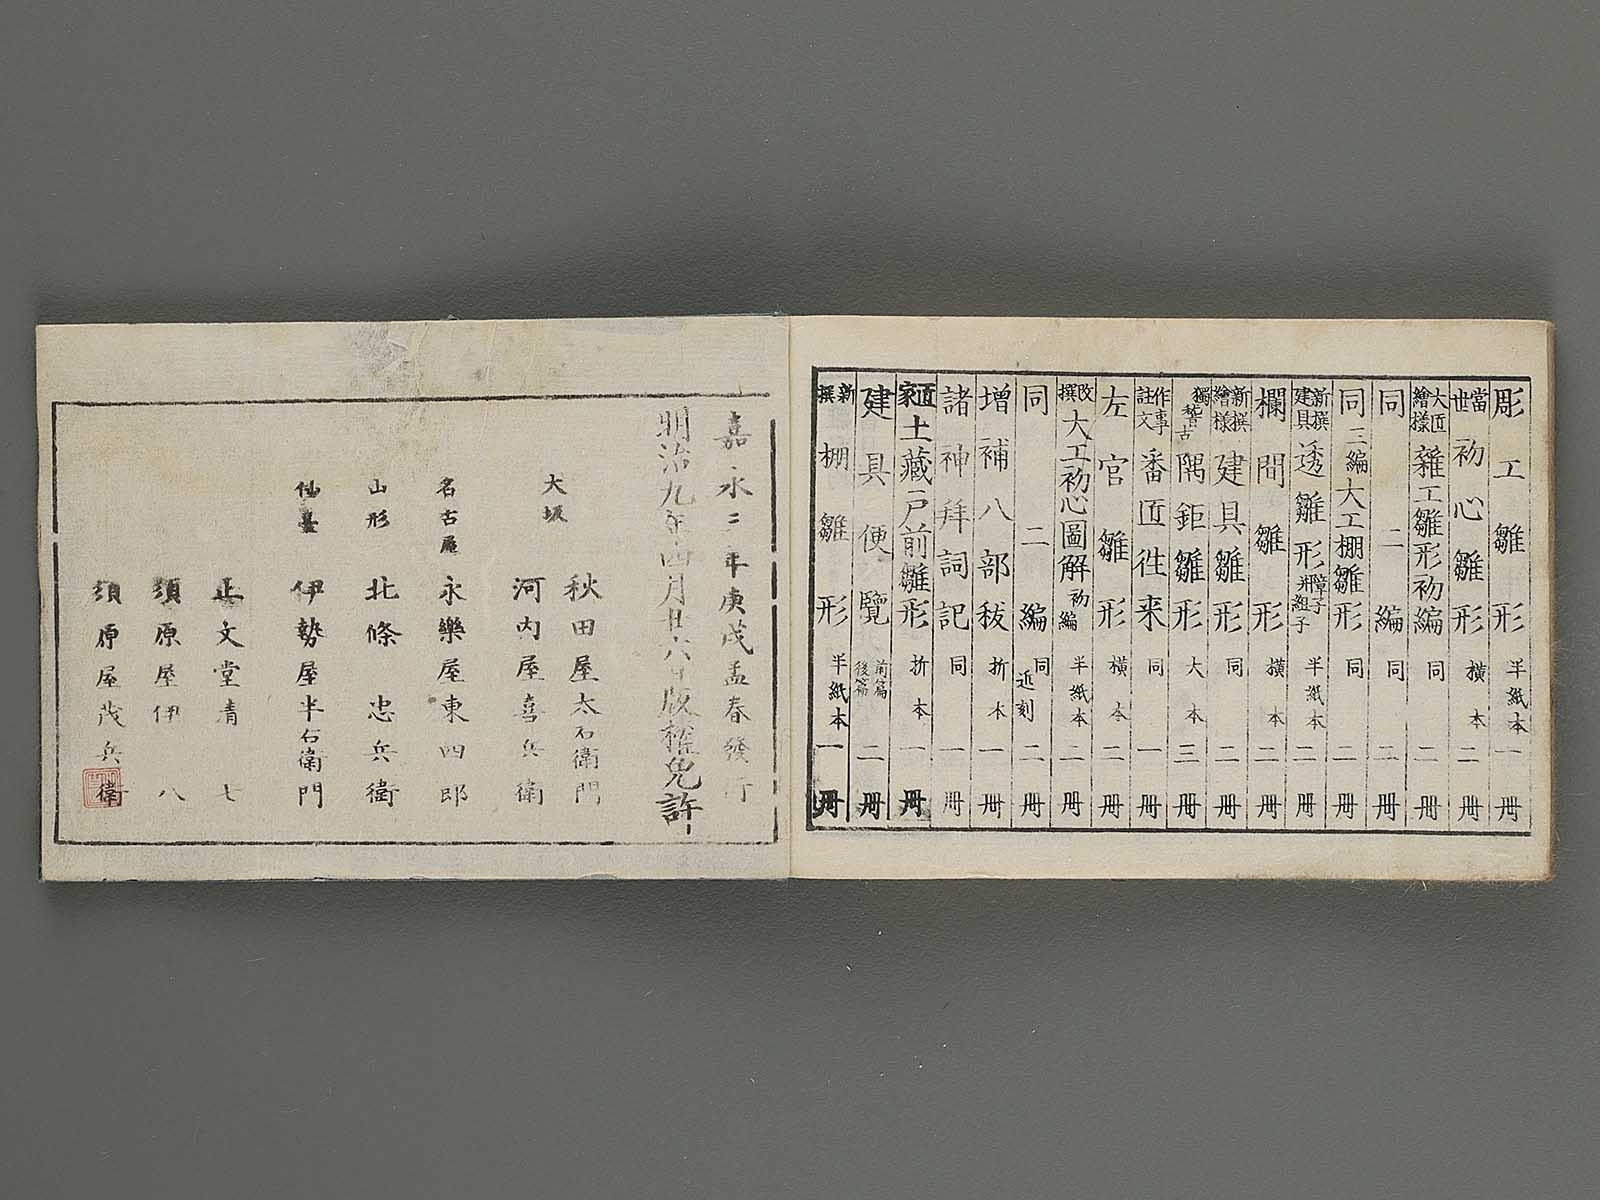 彫工雛形 半紙本 一冊
當世 初心雛形 横本 二冊
大匠繪樣 雜工雛形初編 同 二冊
同 二編 同 二冊
同三編大工棚雛形 同 二冊
新撰建具 透雛形 幷障子組子 半紙本 二冊
欄間雛形 横本 二冊
新撰繪樣 建具雛形 同 二冊
獨稽古 隅鉅雛形 大本 三冊
作事註文 番匠徃来 同 一冊
左官雛形 横本 二冊
改撰 大工初心圖解 初編 半紙本 二冊
同 二編 同近刻 二冊
増補八部祓 折本 一冊
諸神拜詞記 同 一冊
匠家 土藏戸前雛形 折本 一冊
建具便覽 前篇後篇 二冊
新撰 棚雛形 半紙本 一冊
嘉永二年庚戌孟春發行
明治九年四月廿六日版權免許
大坂 秋田屋太右衛門
河内屋喜兵衛
名古屋 永樂屋東四郎
山形 北條忠兵衛
仙臺 伊勢屋半右衛門
正文堂清七
須原屋伊八
須原屋茂兵衛